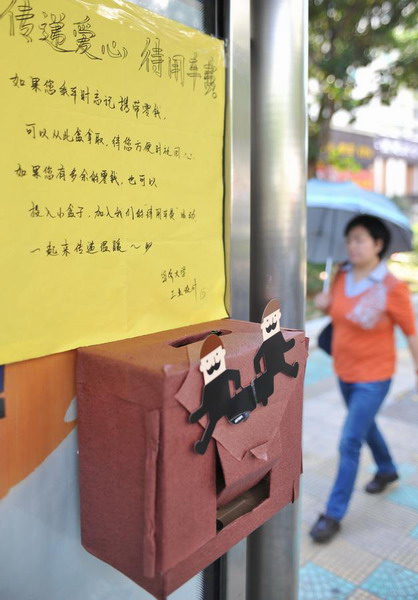 传递爱心 待用车费
如果您乘车时忘记携带零钱,
可以从此盒拿取,待您方便时放回。
如果您有多余的零钱,也可以
投入小盒子,加入我们的"待用车费"活动
一起来传递温暖~
大学